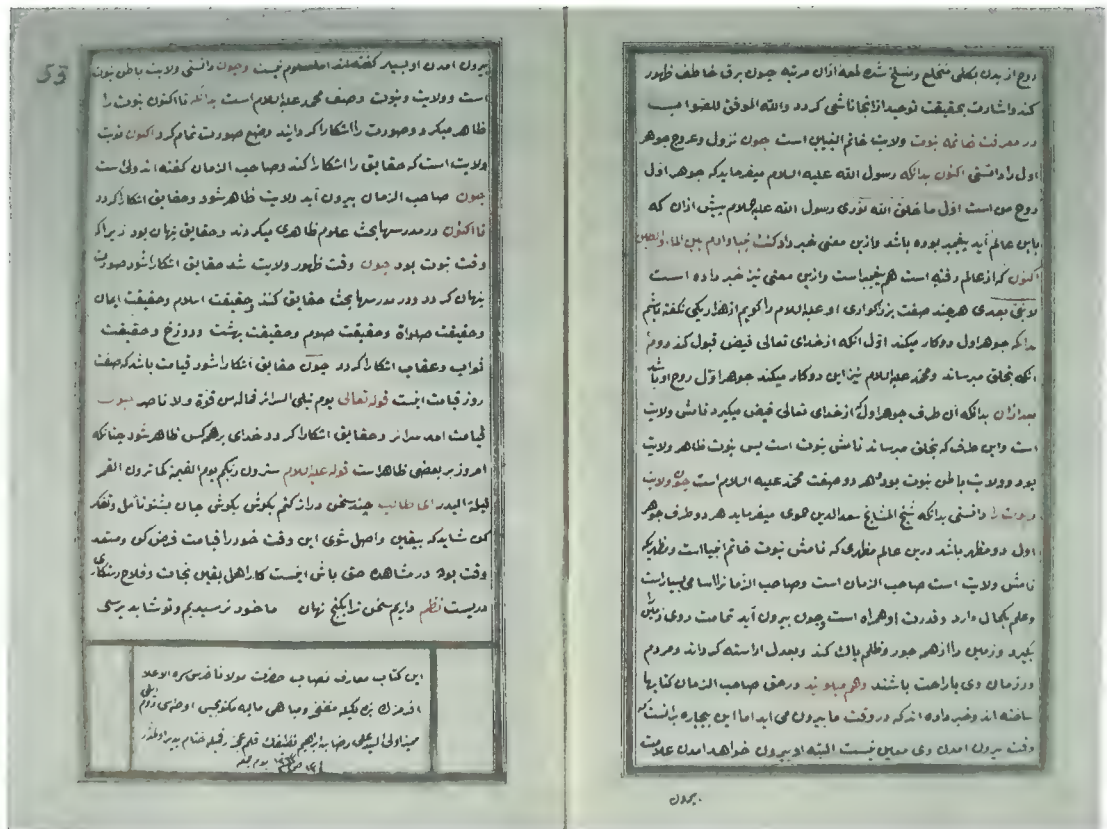 روح از بدن بکلی منخلع و منسلخ شده لمعه ازان مرتبه چون برق خاطف ظهور
کند و اشارت بحقیقت توحید ازانجا ناشی کردد والله الموفق للصواب
در معرفت خاتمه نبوت ولایت خاتم النبیین است چون نزول و عروج جوهر
اول را دانستی اکنون بدانکه رسول الله علیه السلام میفرماید که جوهر اول
روح من است اول ما خلق الله نوری رسول الله علیه السلام پیش ازان که
باین عالم آید پیغمبر بوده باشد و ازین معنی خبر داد کنت نبیا و ادم بین الماء والطین
اکنون که از عالم رفته است هم پیغمبراست و ازین معنی نیز خبر داده است
لا نبی بعدی هر چند صفت بزرکواری او علیه السلام را کویم از هزار یکی نکفته باشم
بدانکه جوهر اول دو کار میکند اول انکه از خدای تعالی فیض قبول کند دوم
انکه بخلق میرساند و محمد علیه السلام نیز این دو کار میکند جوهر اول روح او باشد
بعد ازان بدانکه آن طرف جوهر اول که از خدای تعالی فیض میکیرد نامش ولایت
است و این طرف که بخلق میرساند نامش نبوت است پس نبوت ظاهر ولایت
بود و ولایت باطن نبوت بود هر دو صفت محمد علیه السلام است چون ولایت
و نبوت را دانستی بدانکه شیخ المشایخ سعد الدین حموی میفرماید هر دو طرف جوهر
اول دو مظهر باشد درین عالم مظهری که نامش نبوت خاتم انبیا است و مظهریکه
نامش ولایت است صاحب الزمان است و صاحب الزمان را اسامی بسیار است
و علم بکمال دارد و قدرت او همراه است و چون بیرون آید تمامت روی زمین را
بکیرد و زمین را از همه جور و ظلم پاک کند و بعدل اراسته کرداند و مردم
در زمان وی با راحت باشند در حق صاحب الزمان کتابها
ساخته اند و خبر داده اند که در وقت ما بیرون می اید اما این بیچاره بدانست که
وقت بیرون امدن وی معین نیست البته او بیرون خواهد امدن علامت
بیرون
53
بیرون امدن او بسیار کفته اند اما معلوم نیست و چون دانستی ولایت باطن نبوت
است و ولایت و نبوت وصف محمد علیه السلام است بدانکه تا اکنون نبوت را
ظاهر میکرد و صورت را اشکارا کردانید وضع صورت تمام کرد اکنون نوبت
ولایت است که حقایق را اشکارا کند و صاحب الزمان کفته اند ولی است
چون صاحب الزمان بیرون آید ولایت ظاهر شود و حقایق اشکارا کردد
تا اکنون در مدرسها بحث علوم ظاهری میکردند و حقایق پنهان بود زیرا که
وقت نبوت بود چون وقت ظهور ولایت شد حقایق اشکارا شود صورت
پنهان کردد و در مدرسها بحث حقایق کنند و حقیقت اسلام و حقیقت ایمان
و حقیقت صلواة و حقیقت صوم و حقیقت بهشت و دوزخ و حقیقت
ثواب و عقاب اشکارا کردد چون حقایق اشکارا شود قیامت باشد که صفت
روز قیامت اینست قوله تعالی یوم تبلی السرائر فماله من قوة ولا ناصر
قیامت امد سرائر و حقایق اشکارا کردد خدای بر همه کس ظاهر شود چنانکه
امروز بر بعضی ظاهر است قوله علیه السلام سترون ربکم یوم القیمة کما ترون القمر
لیلة البدر ای طالب چند سخن دراز کنم بکوش بکوش جان بشنو تأمل و تفکر
کن شاید که بیقین واصل شوی این وقت خود را قیامت فرض کن و مستعد
وقت بوده در مشاهده حق باش اینست کار اهل یقین نجات و فلاح و رستکاری
دریست نظم داریم سخن ترا بکنج نهان ما خود نرسیدیم و تو شاید برسی
این کتاب معارف نصاب حضرت مولانا قدس سره الاعلا